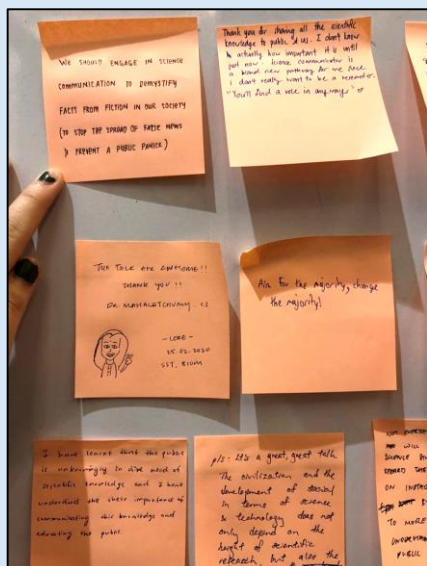 WE SHOULD ENGAGE IN SCIENCE
COMMUNICATION TO DEMYSTIFY
FACTS FROM FICTION IN OUR SOCIETY
(TO STOP THE SPREAD OF FALSE NEWS
& PREVENT A PUBLIC PANICK)
Thank you for sharing all the scientific
knowledge to public & us. I don't know
actually how important it is until
just now. Science communicator is
a brand new pathway for me since
i don't really want to be a researcher.
"You'll find a role in anyways"
THE TALK ARE AWESOME!!
THANK YOU!!
DR. MAHALETCHUMY. <3
- LORE -
25.02.2020
SST,
Aim for the majority, change
the majority!
I have learnt that the public
is unknowingly in dire need of
scientific knowledge and I have
understood the sheer importance of
communicating this knowledge and
educating the public.
p/s: It's a great, great talk
The civilization and the
development of
in terms of science
& technology does not
only depend on the
height of scientific
research, but also the
WILL
SCIENCE
SPREAD THE
ON
TO MORE
PUBLIC